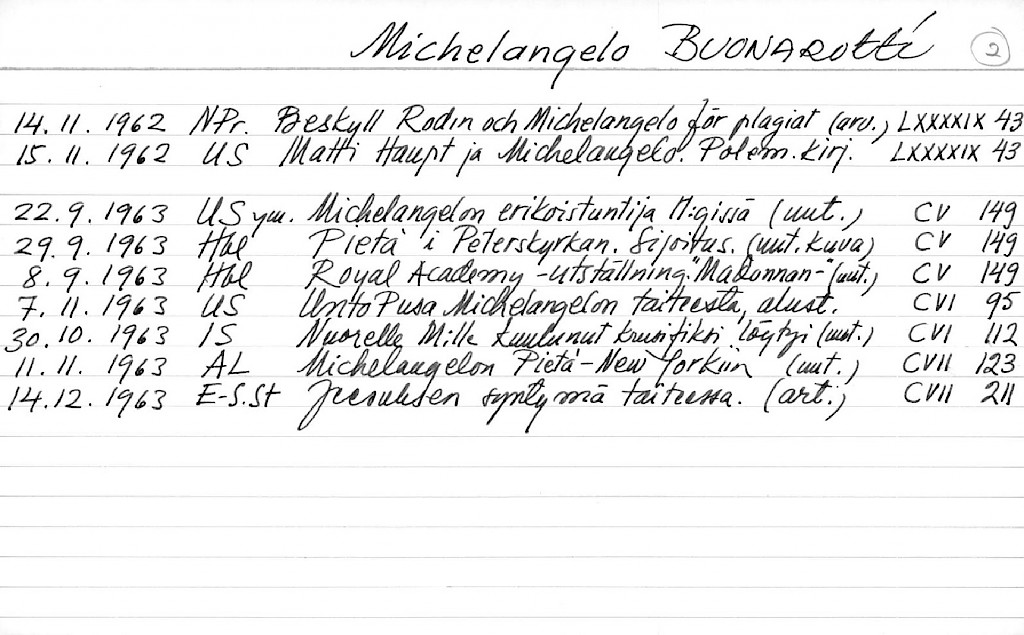 Michelangelo BUONAROTTI 2
14.11.1962 NPr. Beskyll Rodin och Michelangelo för plagiat (arv.) LXXXXIX 43
15.11.1962 US Matti Haupt ja Michelangelo. Polem. kirj. LXXXXIX 43
22.9.1963 US ym. Michelangelon erikoistuntija H:gissä (uut.) CV 149
29.9.1963 Hbl Pietà i Peterskyrkan. Sijoitus. (uut. kuva) CV 149
8.9.1963 Hbl Royal Academy -utställning. "Madonnan-" (uut.) CV 149
7.11.1963 US Unto Pusa Michelangelon taiteesta, alust. CVI 95
30.10.1963 IS Nuorelle Mille kuulunut krusifiksi löytyi (uut.) CVI 112
11.11.1963 AL Michelangelon Pietà - New Yorkiin (uut.) CVII 123
14.12.1963 E-S.St Jeesuksen syntymä taiteessa. (art.) CVII 211